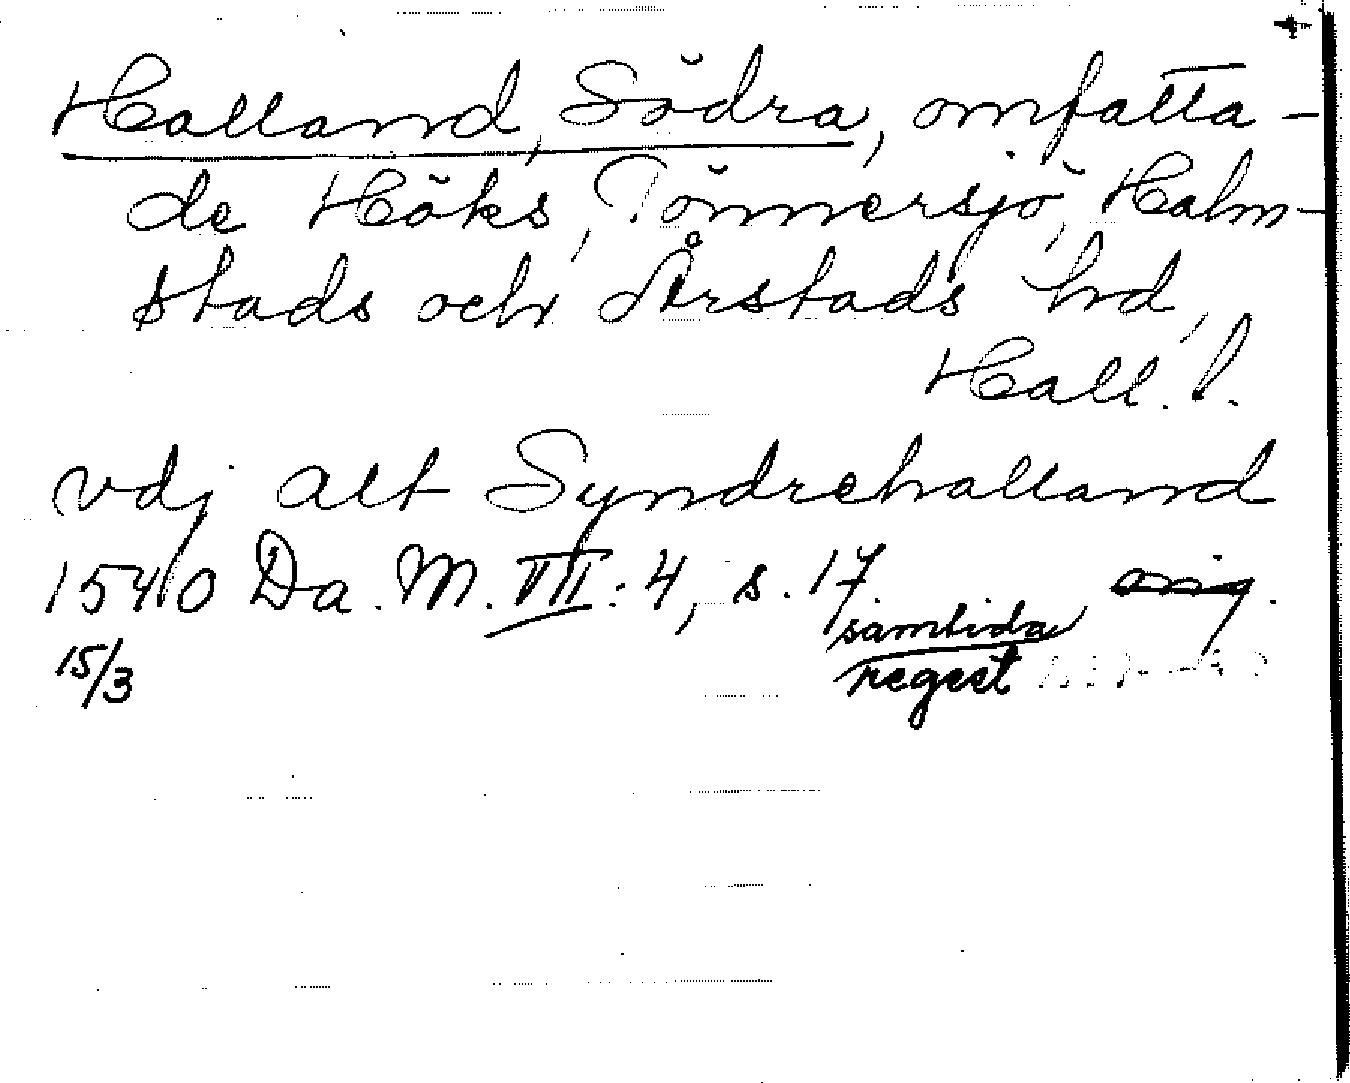 Halland, Södra, omfatta-
de Höks, Tönnersjö, Halm-
stads och Årstads hd,
Hall. l.
vdj alt Syndrehalland
1540 Da. M. III: 4, s. 17. orig.
15/3 samtida
regest